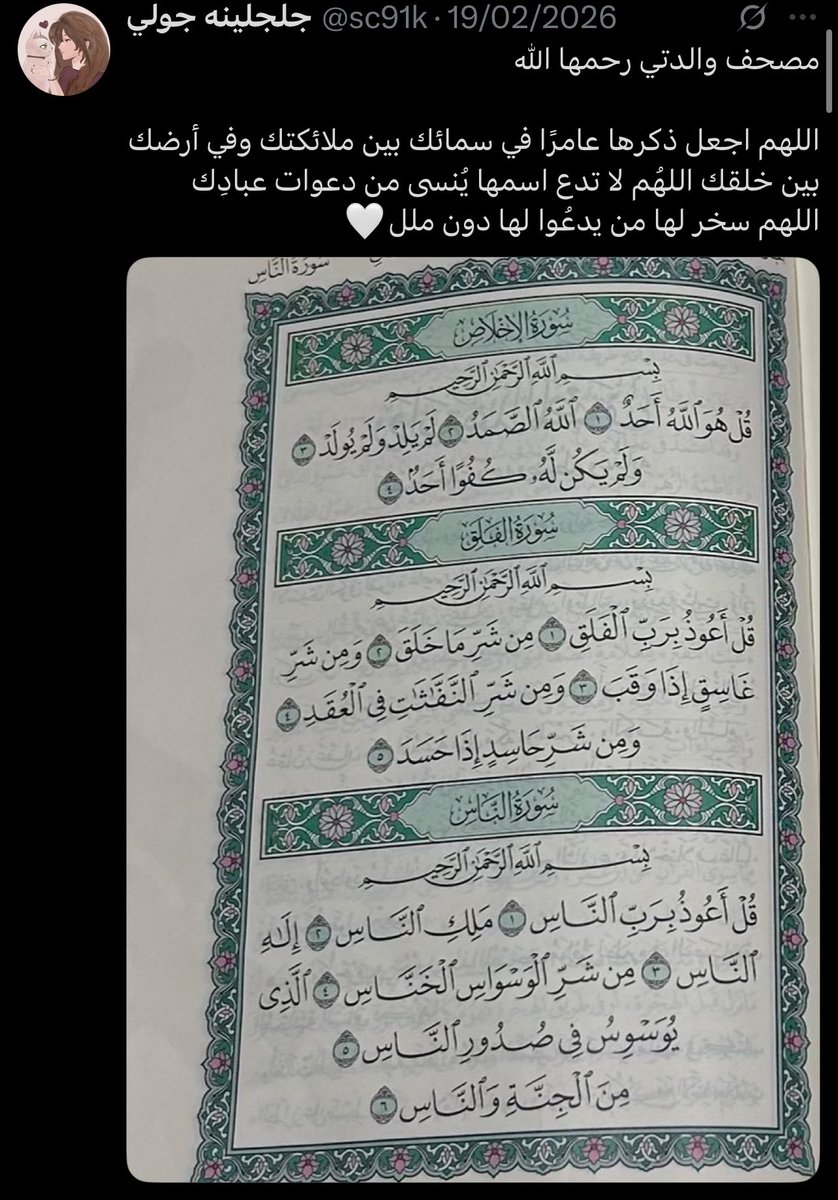 جلجلينه جولي @sc91k · 19/02/2026
مصحف والدتي رحمها الله
اللهم اجعل ذكرها عامرًا في سمائك بين ملائكتك وفي أرضك
بين خلقك اللهُم لا تدع اسمها يُنسى من دعوات عبادِك
اللهم سخر لها من يدعُوا لها دون ملل🤍
سُورَةُ النَّاسِ
سُورَةُ الإِخۡلَاصِ
بِسۡمِ ٱللَّهِ ٱلرَّحۡمَٰنِ ٱلرَّحِيمِ
قُلۡ هُوَ ٱللَّهُ أَحَدٌ ١ ٱللَّهُ ٱلصَّمَدُ ٢ لَمۡ يَلِدۡ وَلَمۡ يُولَدۡ ٣
وَلَمۡ يَكُن لَّهُۥ كُفُوًا أَحَدُۢ ٤
سُورَةُ الفَلَقِ
بِسۡمِ ٱللَّهِ ٱلرَّحۡمَٰنِ ٱلرَّحِيمِ
قُلۡ أَعُوذُ بِرَبِّ ٱلۡفَلَقِ ١ مِن شَرِّ مَا خَلَقَ ٢ وَمِن شَرِّ
غَاسِقٍ إِذَا وَقَبَ ٣ وَمِن شَرِّ ٱلنَّفَّٰثَٰتِ فِي ٱلۡعُقَدِ ٤
وَمِن شَرِّ حَاسِدٍ إِذَا حَسَدَ ٥
سُورَةُ النَّاسِ
بِسۡمِ ٱللَّهِ ٱلرَّحۡمَٰنِ ٱلرَّحِيمِ
قُلۡ أَعُوذُ بِرَبِّ ٱلنَّاسِ ١ مَلِكِ ٱلنَّاسِ ٢ إِلَٰهِ
ٱلنَّاسِ ٣ مِن شَرِّ ٱلۡوَسۡوَاسِ ٱلۡخَنَّاسِ ٤ ٱلَّذِي
يُوَسۡوِسُ فِي صُدُورِ ٱلنَّاسِ ٥
مِنَ ٱلۡجِنَّةِ وَٱلنَّاسِ ٦